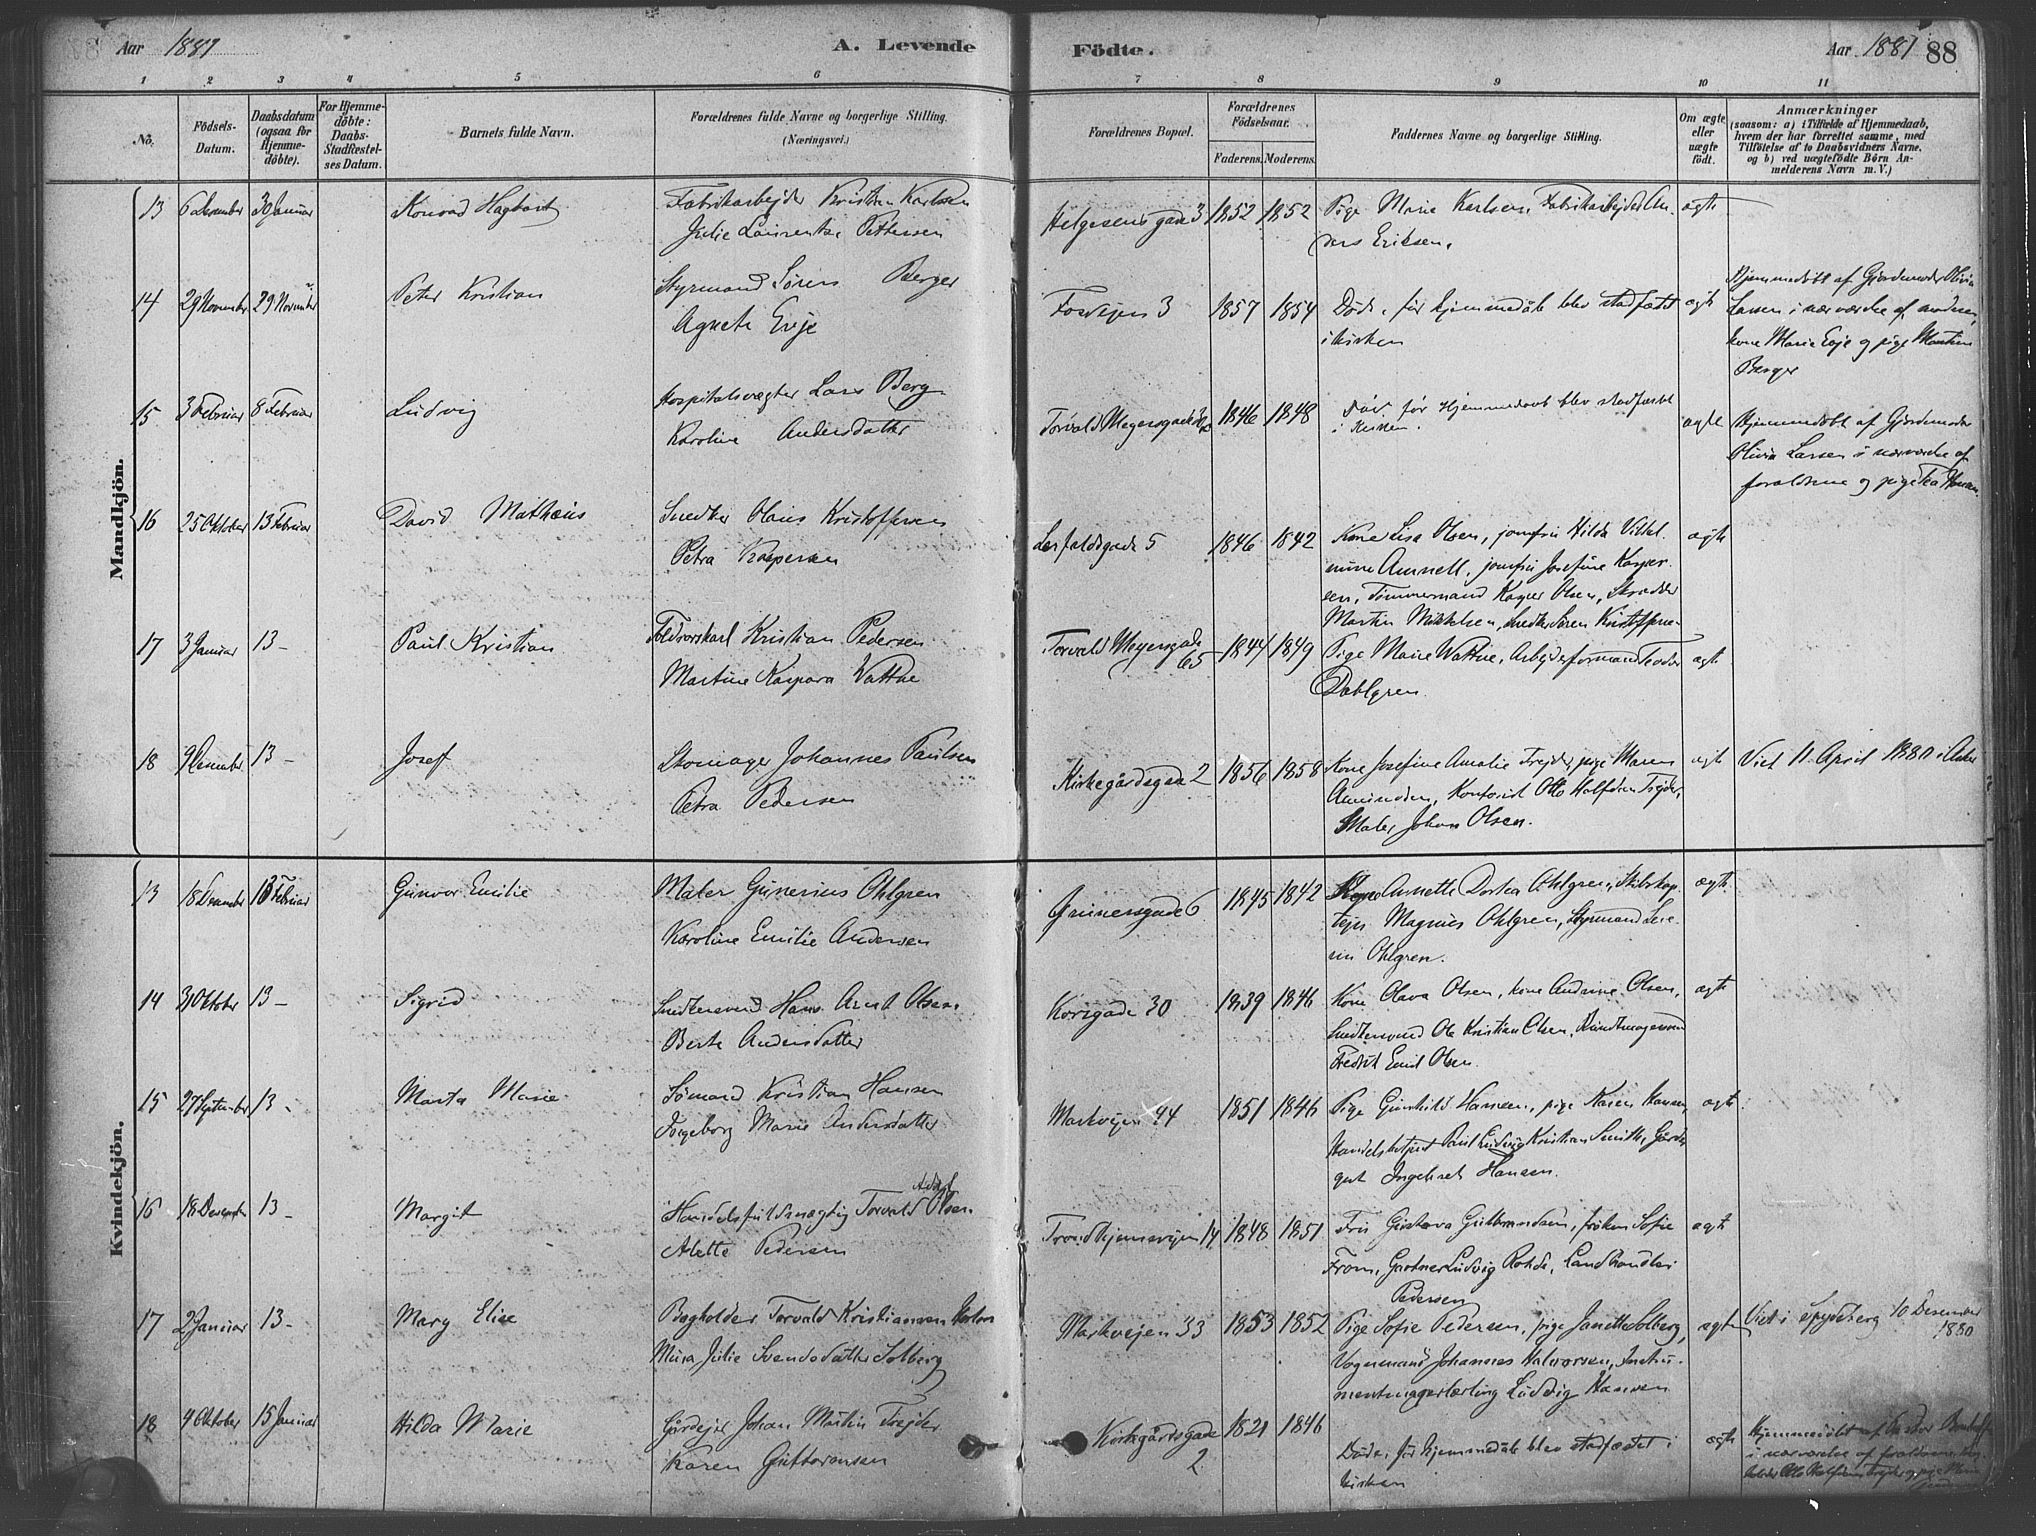 Aar 1881
A. Levende
Födte.
Aar 1881
88
1 2 3 4 5 6 7 8 9 10 11
No.
Födsels-
Datum.
Daabsdatum
(ogsaa for
Hjemme-
döbte).
For Hjemme-
döbte:
Daabs-
Stadfæstel-
ses Datum.
Barnets fulde Navn.
Forældrenes fulde Navne og borgerlige Stilling.
(Næringsvei.)
Forældrenes Bopæl.
Forældrenes
Födselsaar.
Faderens. Moderens.
Faddernes Navne og borgerlige Stilling.
Om ægte
eller
uægte
födt.
Anmærkninger
(soasom: a) i Tilfælde af Hjemmedaab,
hvem der har forrettet samme, med
Tilföielse af to Daabsvidners Navne,
og b) ved uægtefödte Börn An-
melderens Navn m. V.)
Mandkjön.
13 6 Desember 30 Januar Konrad Hagbart Fabrikarbejder Kristian Karlsen
Julie Laurentze Pettersen
Helgesensgade 3 1852 1852 Pige Marie Karlsen, Fabrikarbejder An-
ders Eriksen.
ægte
14 29 November 29 November Peter Kristian Styrmand Sörens Berger
Agnete Eeje
Fossvejen 3 1857 1854 Døde, før hjemmedåb blev stadfæstet
i kirken
ægte
Hjemmedöbt af Gjordemoder Olivia
Larsen i nærværelse af moderen,
kone Marie Eeje og pige Martine
Berger
15 3 Februar 8 Februar Ludvig Hospitalsvægter Lars Berg
Karoline Andersdatter
Torvald Meyersgade 1846 1848 Död før Hjemmedaab blev stadfæstet
i Kirken.
ægte
Hjemmedöbt af Gjordemoder
Olivia Larsen i nærværelse af
forældrene og pige Tea Hansen.
16 25 Oktober 13 Februar David Mathæus Snedker Olaus Kristoffersen
Petra Kaspersen
Lerfaldsgade 5 1846 1842 Kone Lisa Olsen, jomfru Hilda Vilhel-
mine Amnell, jomfru Josefine Kasper-
sen, Tömmermand Kasper Olsen, Skrædder
Martin Mikkelsen, Snedker Sören Kristoffersen
ægte
17 3 Januar 13 – Paul Kristian Toldrorskarl Kristian Pedersen
Martine Kaspara Watthe
Torvald Meyersgade
65
1844 1849 Pige Marie Watthe, Arbejdsformand Teodor
Dahlgren.
ægte
18 9 Desember 13 – Josef Skomager Johannes Paulsen
Petra Pedersen
Kirkegårdsgade 2 1856 1858 Kone Josefine Amalie Trejder, pige Maren
Amundsen, Kontorist Otto Halfdan Trejder,
Maler Johan Olsen.
ægte
Viet 11 April 1880 i Aker
Kvindekjön.
13 18 Desember 13 Februar Gunvor Emilie Maler Gunerius Ohlgren
Karoline Emilie Andersen
Grünersgade 6 1845 1842 Kone Annette Dortea Ohlgren, Skibskap-
tejn Magnus Ohlgren, Styrmand Seve-
rin Ohlgren.
ægte
14 31 Oktober 13 – Sigrid Snedkersvend Hans Arnt Olsen
Berte Andersdatter
Korsgade 30 1839 1846 Kone Olava Olsen, kone Andrine Olsen,
Snedkersvend Ole Kristian Olsen, Buntmagersvend
Fredrik Emil Olsen
ægte
15 27 September 13 – Marta Marie Sömand Kristian Hansen
Ingeborg Marie Andersdatter
Markvejen 44 1851 1846 Pige Gunhild Hansen, pige Karen Hansen,
Handelsbetjent Paul Ludvig Kristian Smith, Gårds-
gut Ingebret Hansen.
ægte
16 18 Desember 13 – Margit Handelsfuldmægtig Torvald Adolf Olsen
Alette Pedersen
Trondhjemsvejen 14 1848 1851 Fru Gustava Gulbrandsen, fröken Sofie
From, Gartner Ludvig Rohde, Landhandler
Pedersen
ægte
17 2 Januar 13 – Mary Elise Bogholder Torvald Kristiansen
Mina Julie Svendsdatter Solberg
Markvejen 33 1853 1852 Pige Sofie Pedersen, pige Janette Solberg,
Vognmand Johannes Halvorsen, Instru-
mentmagerlærling Ludvig Hansen
ægte
Viet i Spydeberg 10 Desember
1880
18 4 Oktober 15 Januar Hilda Marie Gårdejer Johan Martin Trejder
Karen Guttormsen
Kirkegårdsgade
2
1821 1846
Döde, før hjemmedåb blev stadfæstet i
kirken
ægte
Hjemmedöbt af Pastor
i nærværelse af forældrene,
Otto Halfdan Trejder og pige